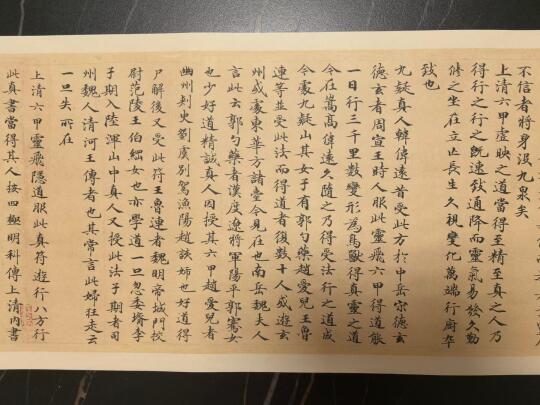 不信者將身沒九泉矣
上清六甲虛映之道當得至精至真之人乃
得行之行之既速致通降而靈氣易發久勤
修之坐在立亡長生久視變化萬端行廚卒
致也
九疑真人韓偉遠昔受此方於中岳宋德玄
德玄者周宣王時人服此靈飛六甲得道能
一日行三千里數變形為鳥獸得真靈之道
今在嵩高偉遠久隨之乃得受法行之道成
今處九疑山其女子有郭勺藥趙愛兒王魯
連等並受此法而得道者復數十人或遊玄
州或處東華方諸臺今見在也南岳魏夫人
言此云郭勺藥者漢度遼將軍陽平郭騫女
也少好道精誠真人因授其六甲趙愛兒者
幽州刺史劉虞別駕漁陽趙該姊也好道得
尸解後又受此符王魯連者魏明帝城門校
尉范陵王伯綱女也亦學道一旦忽委壻李
子期入陸渾山中真人又授此法子期者司
州魏人清河王傳者也其常言此婦狂走云
一旦失所在
上清六甲靈飛隱道服此真符遊行八方行
此真書當得其人按四極明科傳上清內書